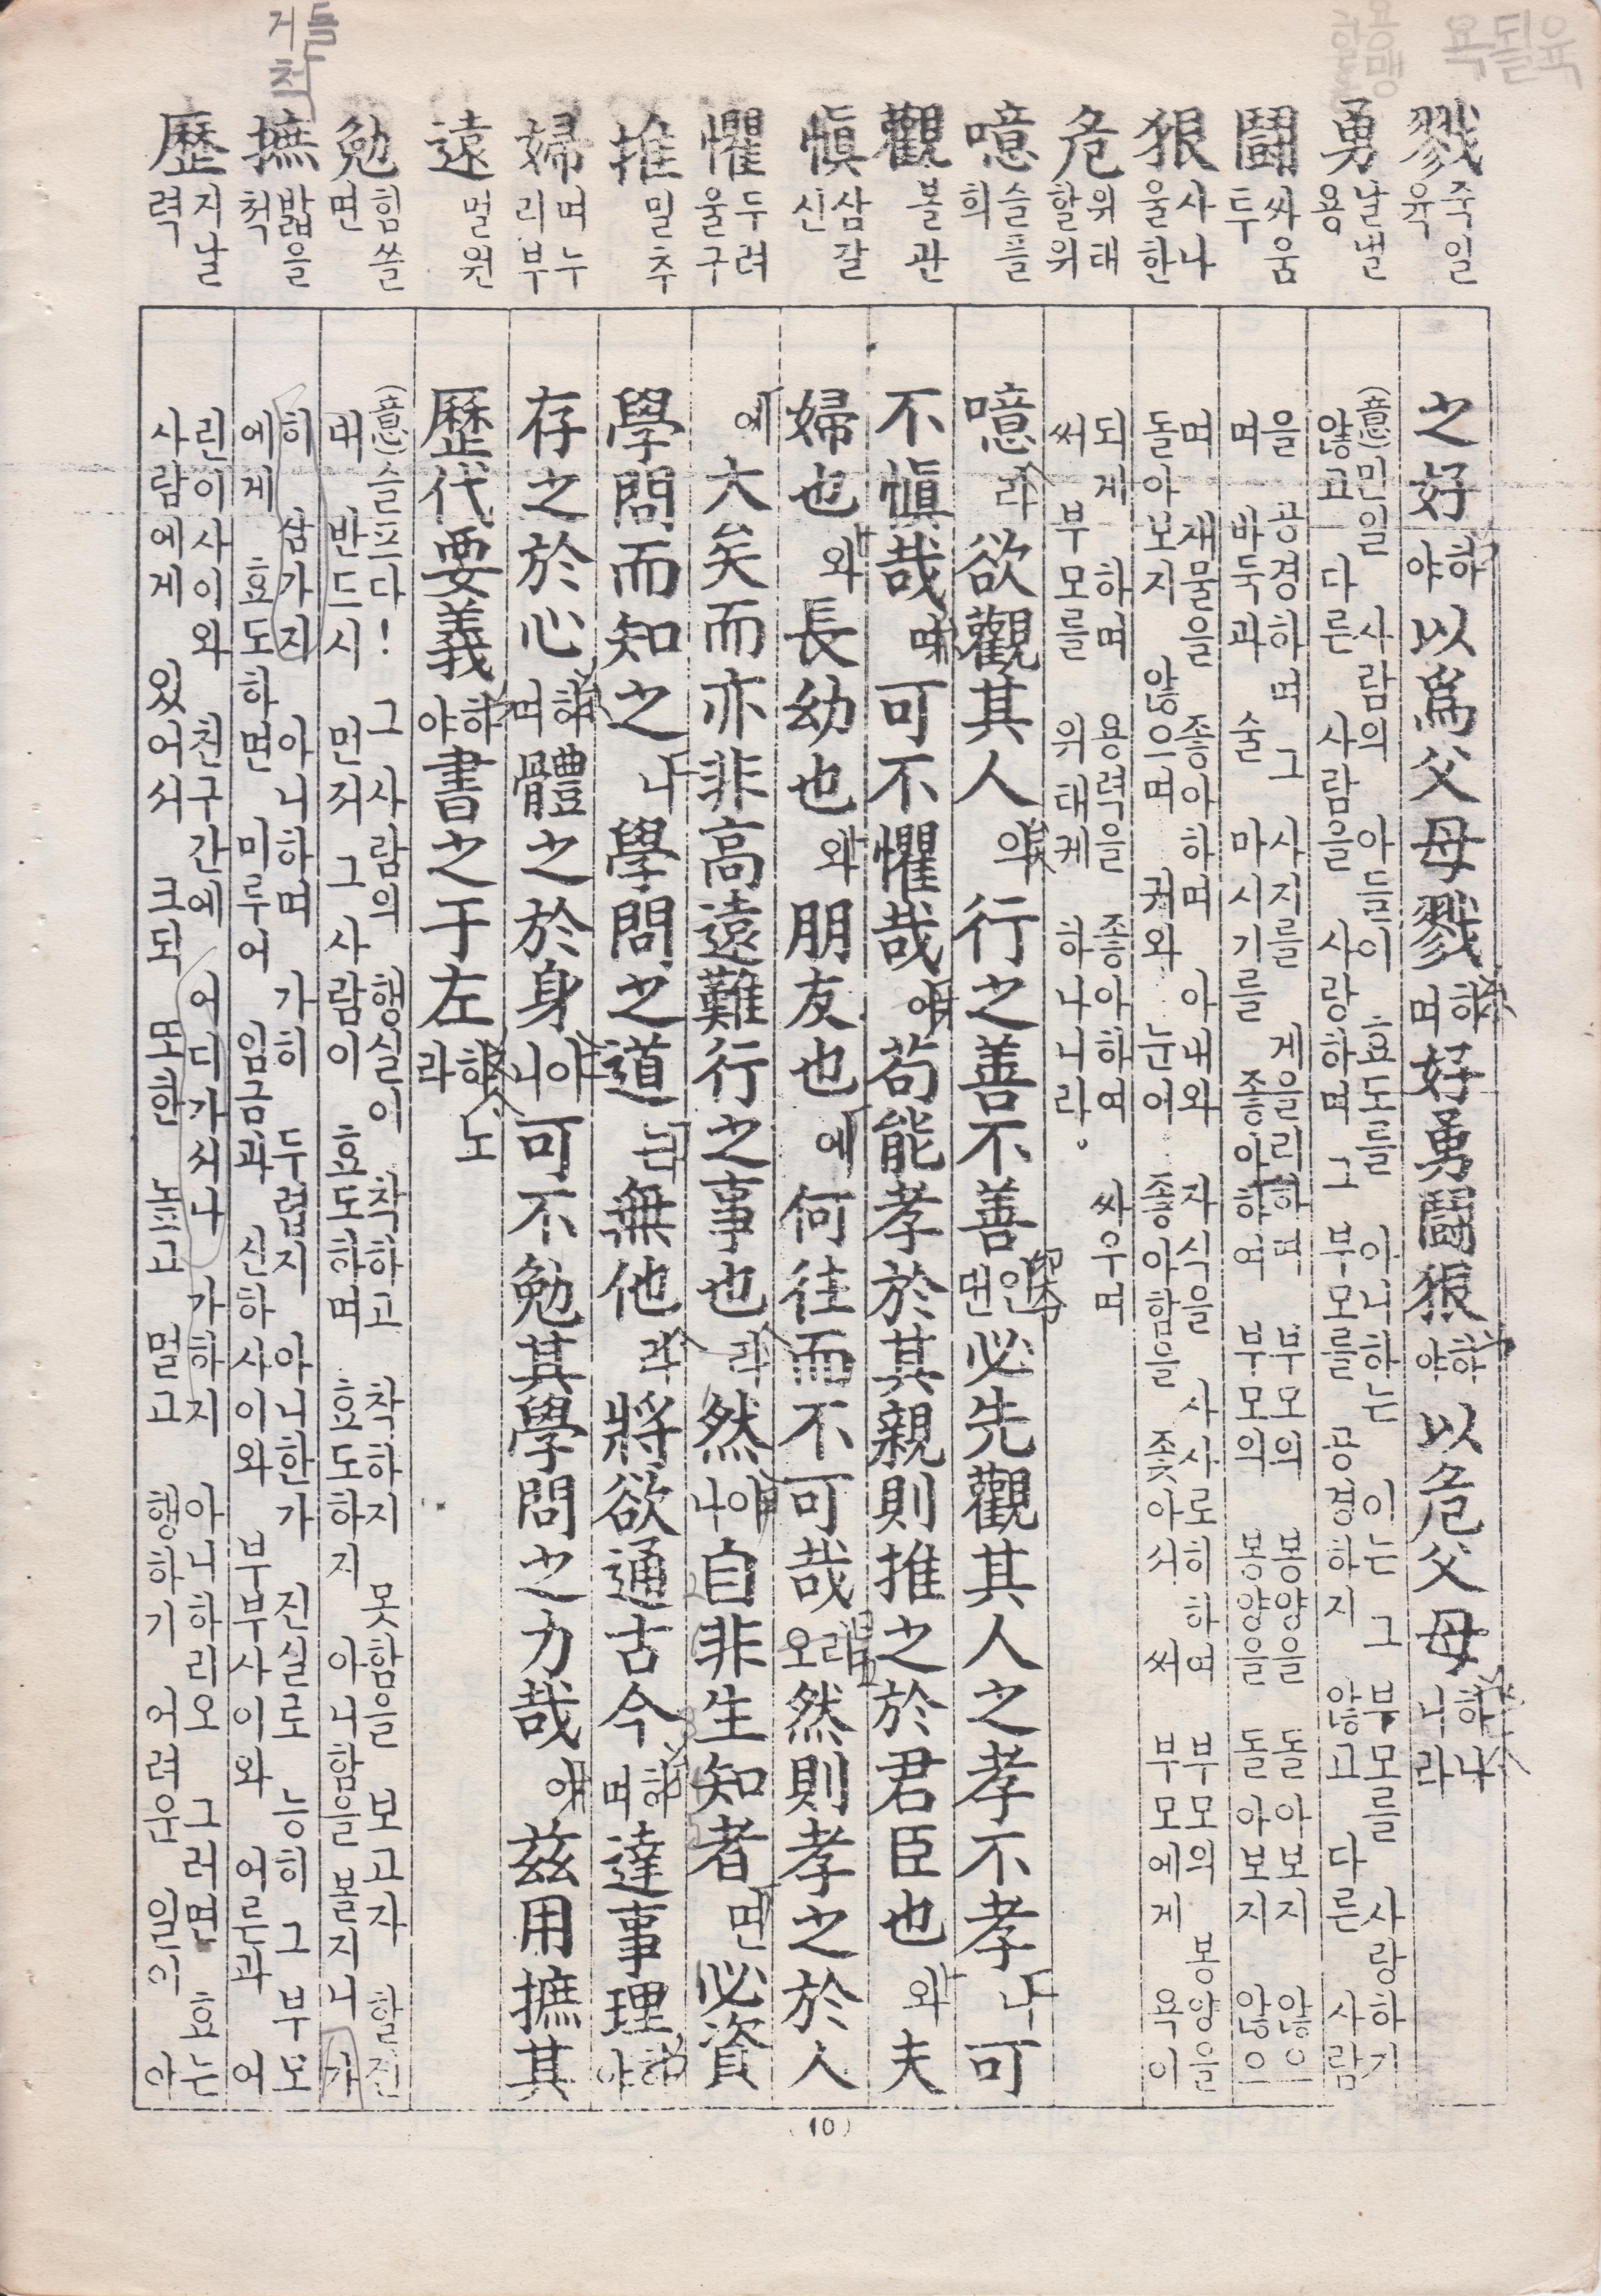 戮 죽일 육
勇 날낼 용
鬪 싸움 두
狠 사나울 한
危 위태할 위
噫 슬플 희
觀 볼 관
愼 삼갈 신
懼 두려울 구
推 밀 추
婦 며누리 부
遠 멀 원
勉 힘쓸 면
撫 밟을 척
歷 지날 력
之好하야以爲父母戮하며好勇鬪狠하야以危父母하나니라
(意)민일 사람의 아들이 효도를 아니하는 이는 그 부모를 사랑하기
않고 다른 사람을 사랑하며 그 부모를 공경하지 않고 다른 사람
을 공경하며 그 사지를 게을리하며 부모의 몽양을 돌아보지 않으
며 바둑과 술 마시기를 좋아하여 부모의 몽양을 돌아보지 않으
며 재물을 좋아하며 아내와 자식을 사사로히하여 부모의 몽양을
돌아보지 않으며 귀와 눈에 좋아함을 좇아서 써 부모에게 욕이
되게 하며 용력을 좋아하여 싸우며
써 부모를 위태케 하나니라。
噫라欲觀其人의行之善不善인댄必先觀其人之孝不孝니可
不愼哉며可不懼哉아苟能孝於其親則推之於君臣也와夫
婦也와長幼也와朋友也에何往而不可哉리오然則孝之於人
에大矣而亦非高遠難行之事也라然이나自非生知者면必資
學問而知之니學問之道는無他라將欲通古今하며達事理하야
存之於心하며體之於身이니可不勉其學問之力哉아茲用摭其
歷代要義하야書之于左하노라
(意)슬프다! 그 사람의 행실이 착하고 착하지 못함을 보고자 할진
대 반드시 먼저 그 사람이 효도하며 효도하지 아니함을 볼지니 가
히 삼가지 아니하며 가히 두렵지 아니한가 진실로 능히 그 부모
에게 효도하면 미루어 임금과 신하사이와 부부사이와 어른과 어
린이사이와 친구간에 어디가서나 가하지 아니하리오 그러면 효는
사람에게 있어서 크되 또한 높고 멀고 행하기 어려운 일이 아
(10)